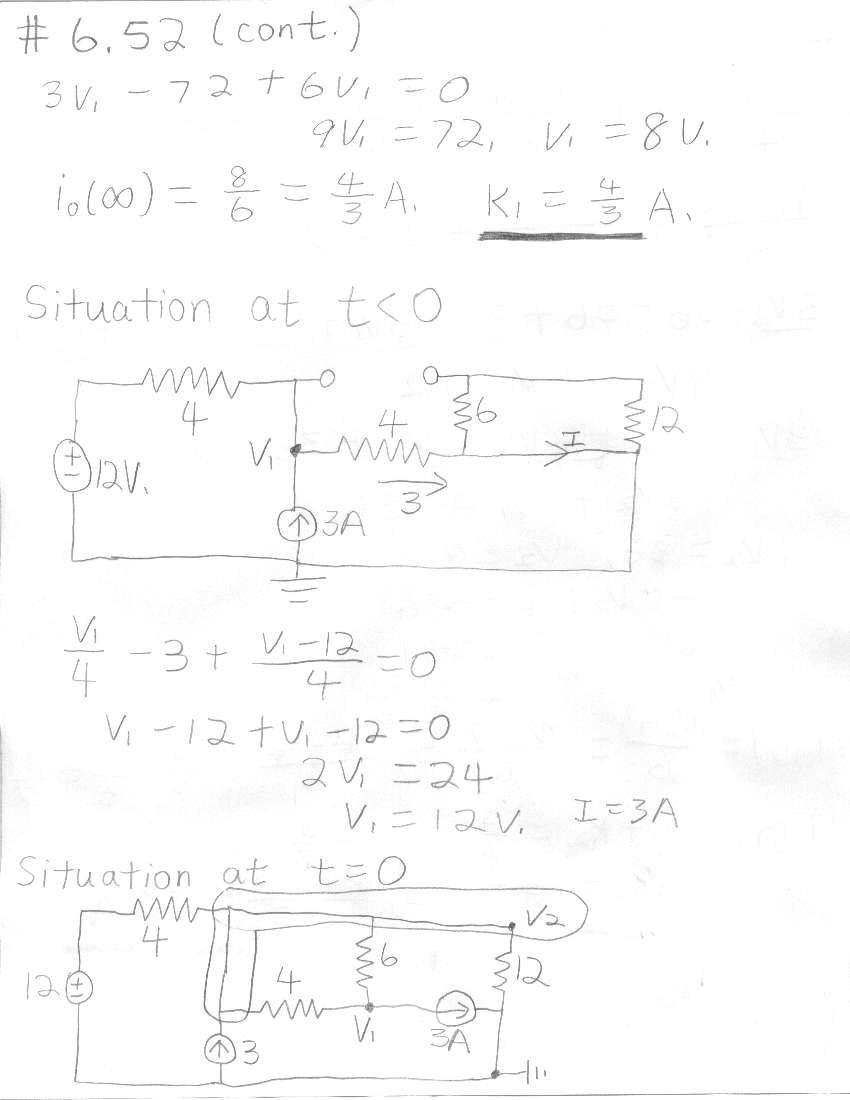 # 6.52 (cont.)
3V₁ - 72 + 6V₁ = 0
9V₁ = 72, V₁ = 8 V.
i₀(∞) = 8/6 = 4/3 A. K₁ = 4/3 A.
Situation at t<0
4
6
12
4
I
V₁
12V.
3
3A
V₁/4 - 3 + (V₁-12)/4 = 0
V₁ - 12 + V₁ - 12 = 0
2V₁ = 24
V₁ = 12 V. I = 3A
Situation at t=0
V₂
4
6
12
12
4
V₁
3A
3